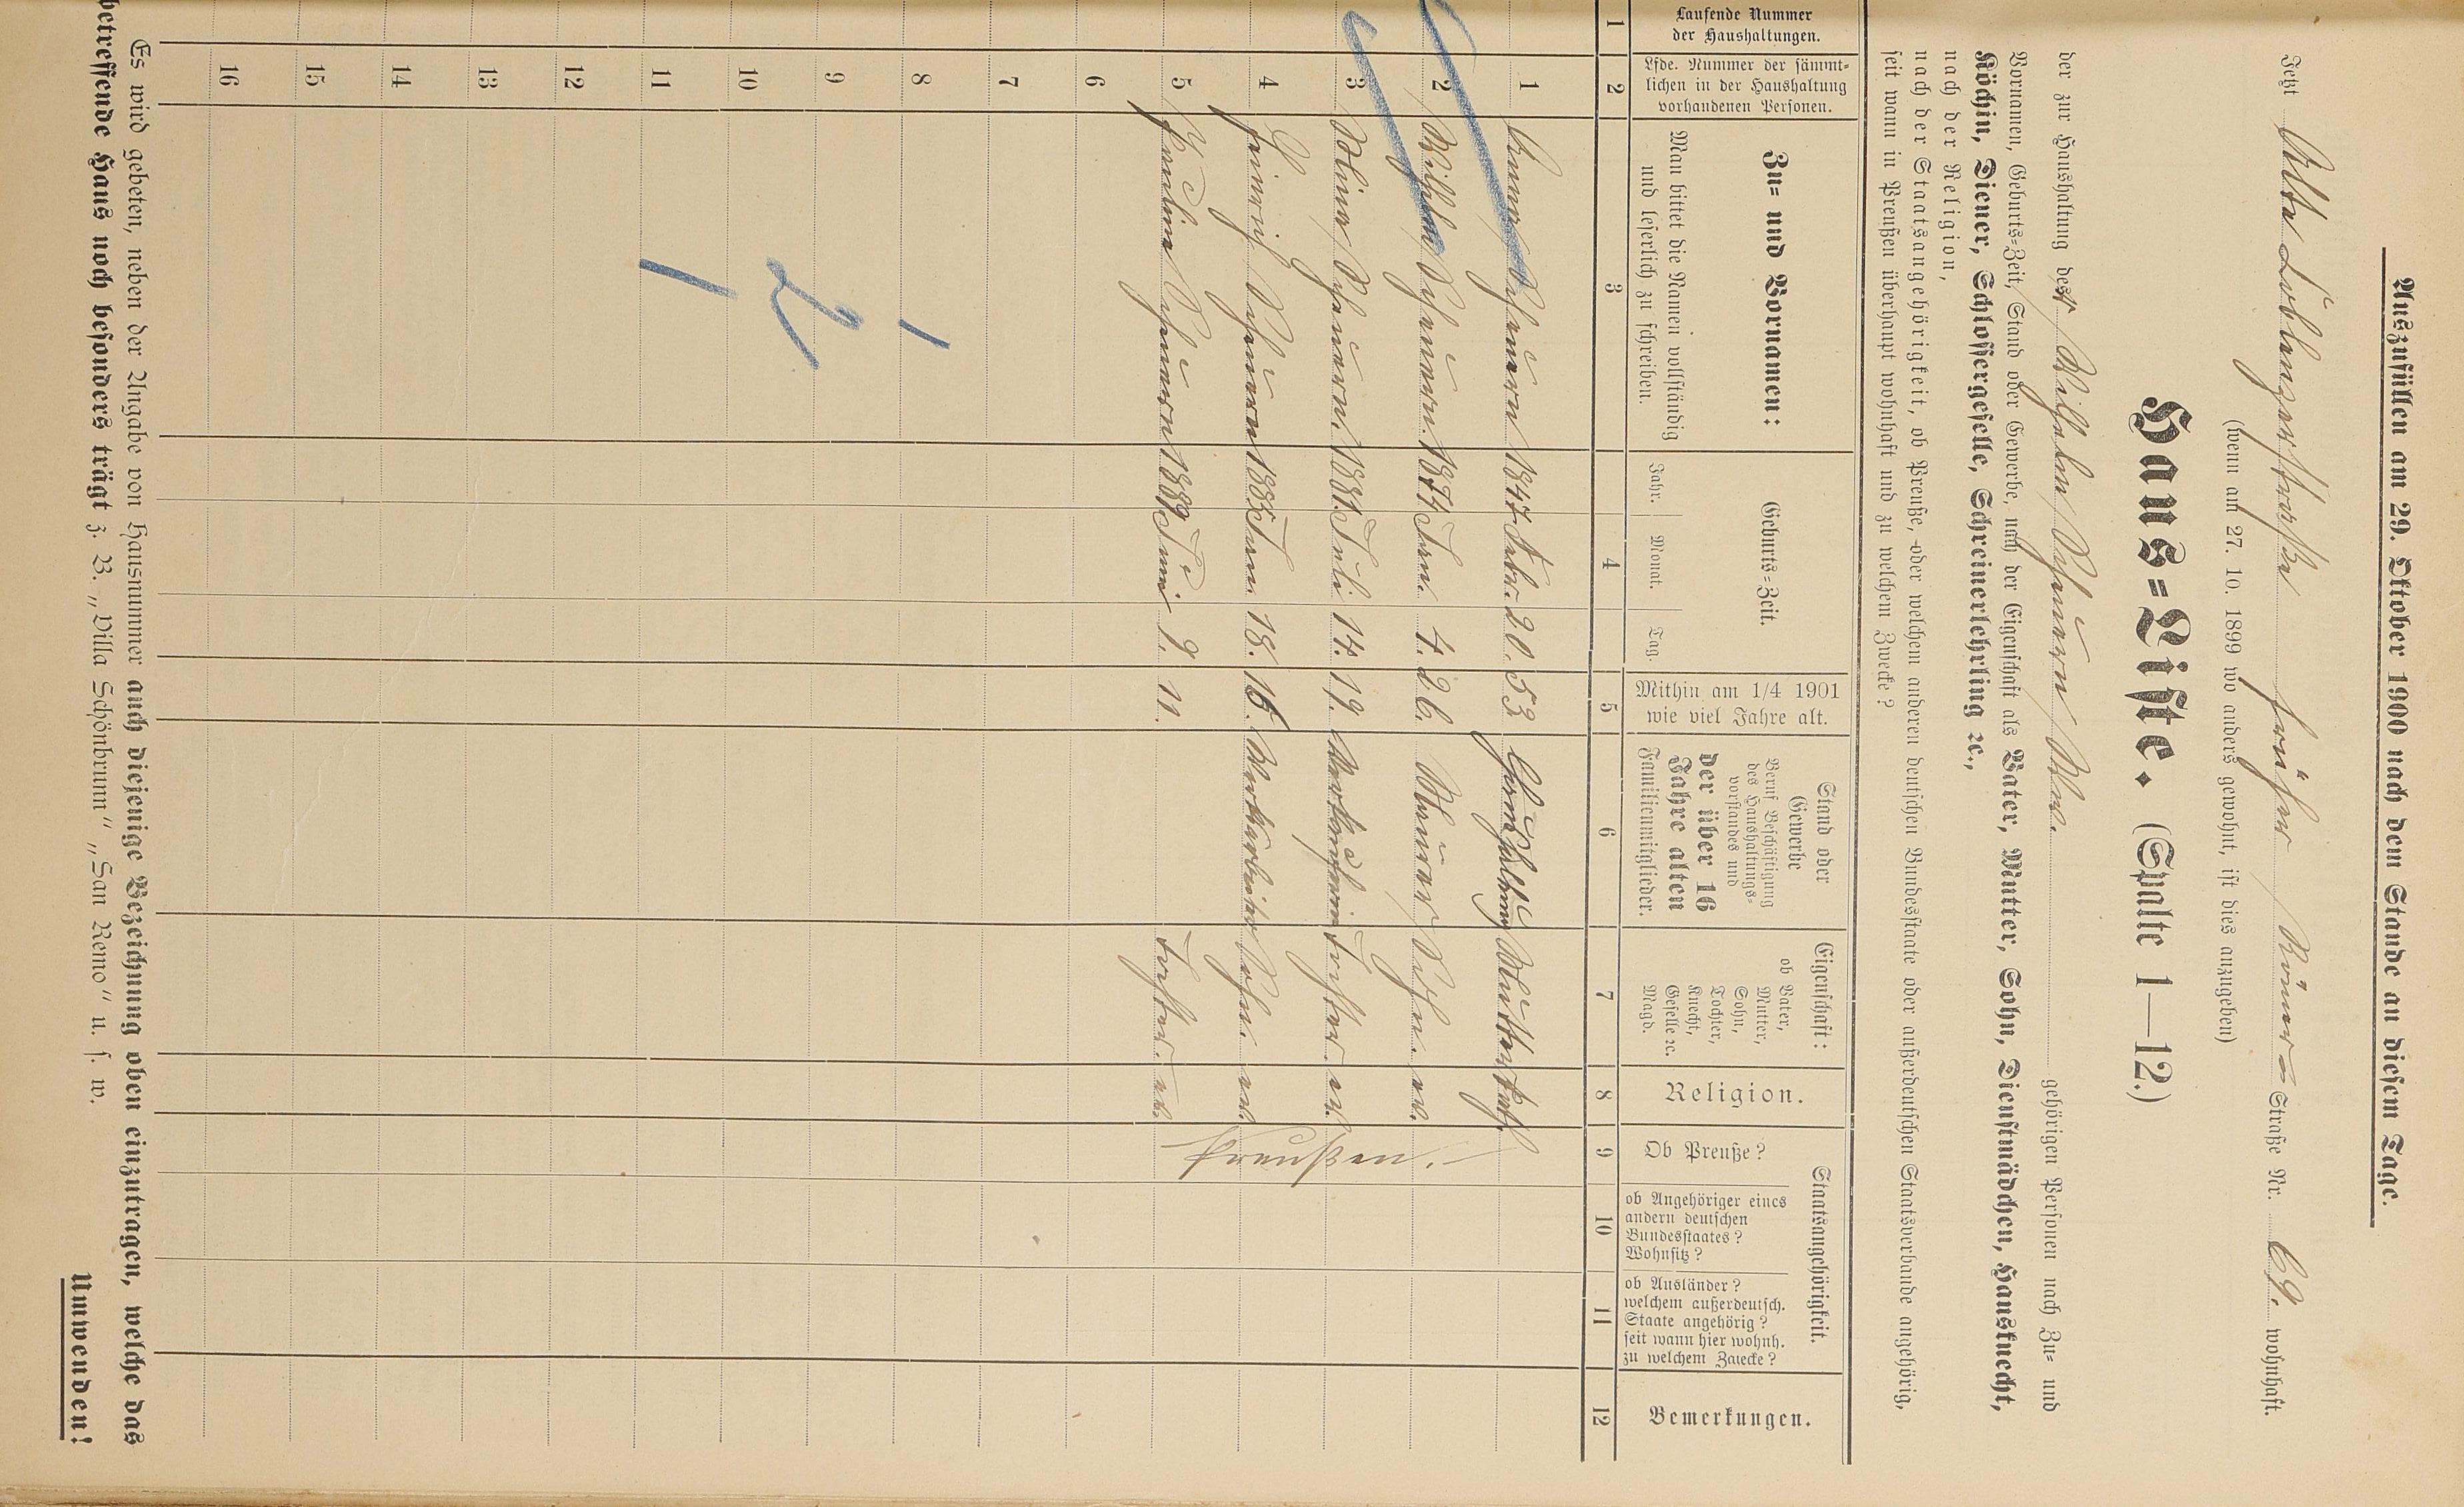 Auszufüllen am 29. Oktober 1900 nach dem Stande an diesem Tage.
Jetzt Alte Coblenzerstraße früher Römer= Straße Nr. 69. wohnhaft.
(wenn am 27. 10. 1899 wo anders gewohnt, ist dies anzugeben)
Haus=Liste. (Spalte 1—12.)
der zur Haushaltung der Wilhelm Scheuren Wwe. gehörigen Personen nach Zu= und
Vornamen, Geburts=Zeit, Stand oder Gewerbe, nach der Eigenschaft als Vater, Mutter, Sohn, Dienstmädchen, Hausknecht,
Köchin, Diener, Schlossergeselle, Schreinerlehrling ꝛc.,
nach der Religion,
nach der Staatsangehörigkeit, ob Preuße, oder welchem anderen deutschen Bundesstaate oder außerdeutschen Staatsverbande angehörig,
seit wann in Preußen überhaupt wohnhaft und zu welchem Zwecke?
Laufende Nummer
der Haushaltungen.
Lfde. Nummer der sämmt=
lichen in der Haushaltung
vorhandenen Personen.
Zu= und Vornamen:
Man bittet die Namen vollständig
und leserlich zu schreiben.
Geburts=Zeit.
Jahr. Monat. Tag.
Mithin am 1/4 1901
wie viel Jahre alt.
Stand oder
Gewerbe
Beruf Beschäftigung
des Haushaltungs=
vorstandes und
der über 16
Jahre alten
Familienmitglieder.
Eigenschaft:
ob Vater,
Mutter,
Sohn,
Tochter,
Knecht,
Geselle ꝛc.
Magd.
Religion.
Staatsangehörigkeit.
Ob Preuße?
ob Angehöriger eines
andern deutschen
Bundesstaates?
Wohnsitz?
ob Ausländer?
welchem außerdeutsch.
Staate angehörig?
seit wann hier wohnh.
zu welchem Zwecke?
Bemerkungen.
1 2 3 4 5 6 7 8 9 10 11 12
1 Anna Scheuren 1847 Febr. 20. 53 Mutter kath.
2 Wilhelm Scheuren. 1874 Jan. 4. 26. Sohn.
3 Scheuren. 1881. Juli 14. 19. Tochter.
4 Heinrich Scheuren 1885 Jan. 18. 16. Sohn.
5 Scheuren 1889. Juni 9. 11. Tochter.
Preußen.
6
7
8
9
10
11
12
13
14
15
16
1
2
1
Es wird gebeten, neben der Angabe von Hausnummer auch diejenige Bezeichnung oben einzutragen, welche das
betreffende Haus noch besonders trägt z. B. „Villa Schönbrunn“ „San Remo“ u. s. w.
Umwenden!